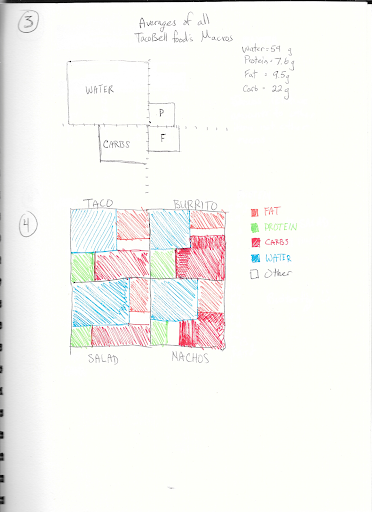 3
Averages of all
TacoBell food's Macros
Water = 59 g
Protein = 7.6g
Fat = 9.5g
Carb = 22g
WATER
P
CARBS
F
4
TACO
BURRITO
FAT
PROTEIN
CARBS
WATER
Other
SALAD
NACHOS